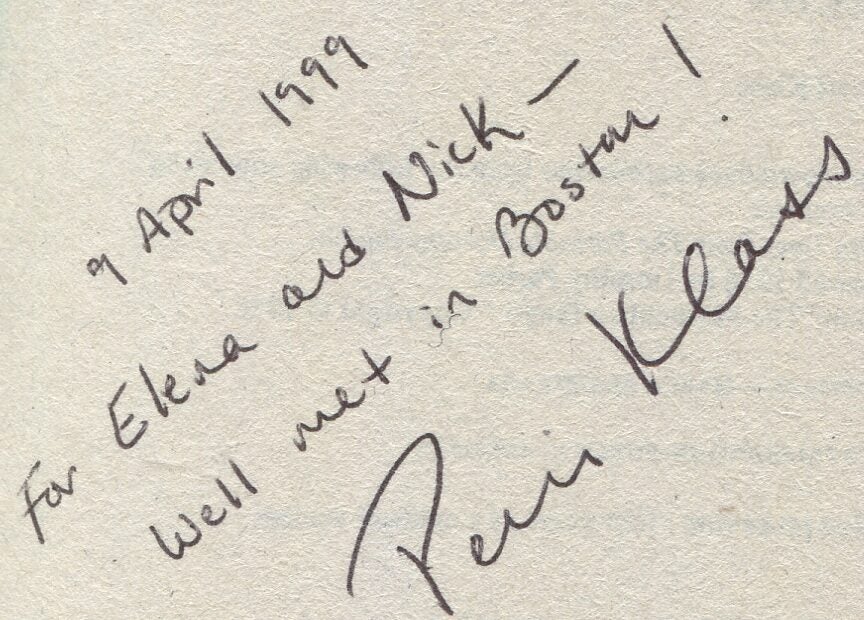 9 April 1999
For Elena and Nick—
Well met in Boston!
Perri Klass